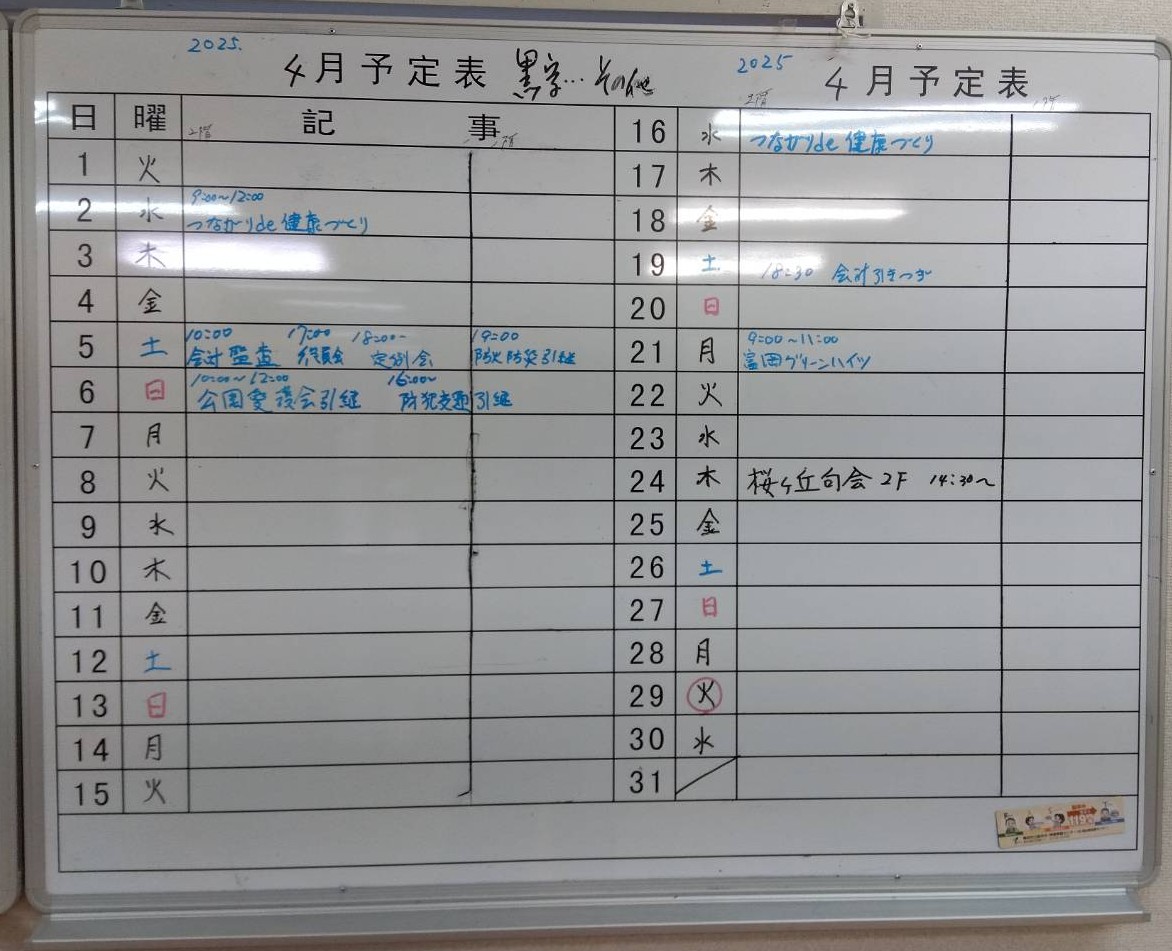 2025.
4月予定表 黒字… その他
日 曜 記事
2階 1階
1 火
2 水 9:00~12:00
つながりde健康づくり
3 木
4 金
5 土 10:00 17:00 18:00~ 19:00
会計監査 役員会 定例会 防火防災引継
6 日 10:00~12:00 16:00~
公園愛護会引継 防犯交通引継
7 月
8 火
9 水
10 木
11 金
12 土
13 日
14 月
15 火
2025
4月予定表
2階 1階
16 水 つながりde健康づくり
17 木
18 金
19 土 18:30 会計引きつぎ
20 日
21 月 9:00~11:00
富岡グリーンハイツ
22 火
23 水
24 木 桜ヶ丘句会 2F 14:30~
25 金
26 土
27 日
28 月
29 火
30 水
31